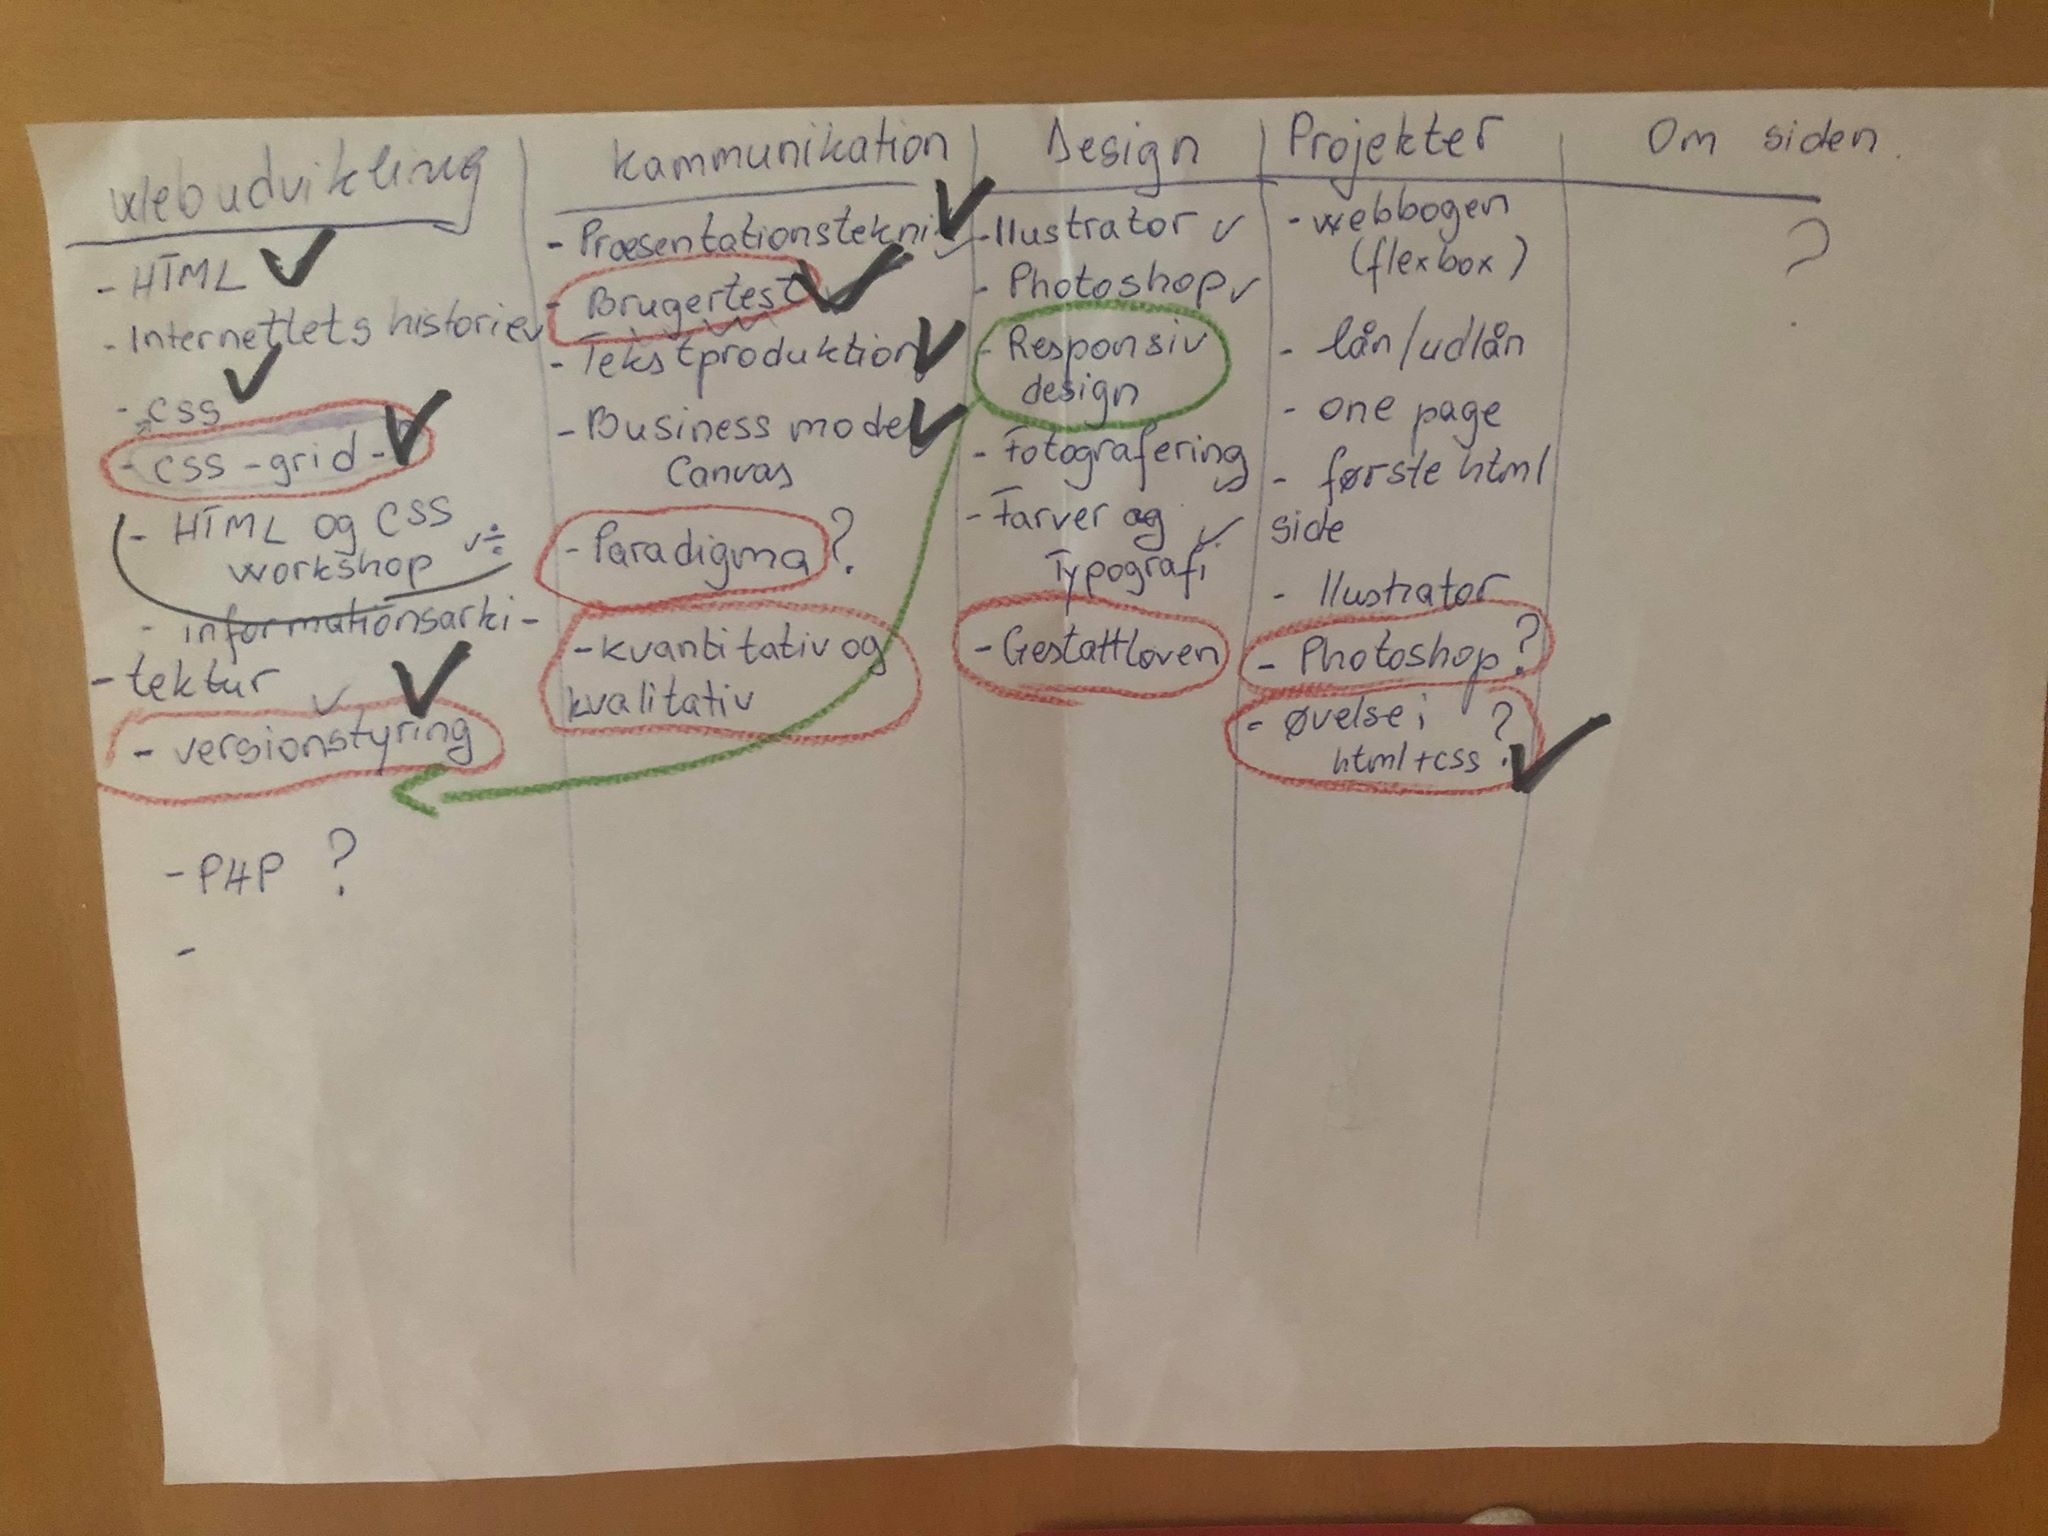 Webudvikling
- HTML ✓
- Internettets historie ✓
✓
- CSS
- CSS -grid- ✓
- HTML og CSS
workshop ✓ ÷
- informationsarki-
- tektur
✓ ✓
- versionstyring
- PHP ?
-
Kammunikation
- Præsentationstekni ✓
- Brugertest ✓
- Tekstproduktion ✓
- Business model ✓
Canvas
- Paradigma ?
- kvantitativ og
kvalitativ
Design
- Ilustrator ✓
- Photoshop ✓
- Responsiv
design
- Fotografering
✓
- Farver og ✓
Typografi
- Gestattloven
Projekter
- webbogen
(flexbox)
- lån/udlån
- one page
- første html
side
- Ilustrator
- Photoshop ?
- øvelse i ?
html+css ? ✓
Om siden.
?